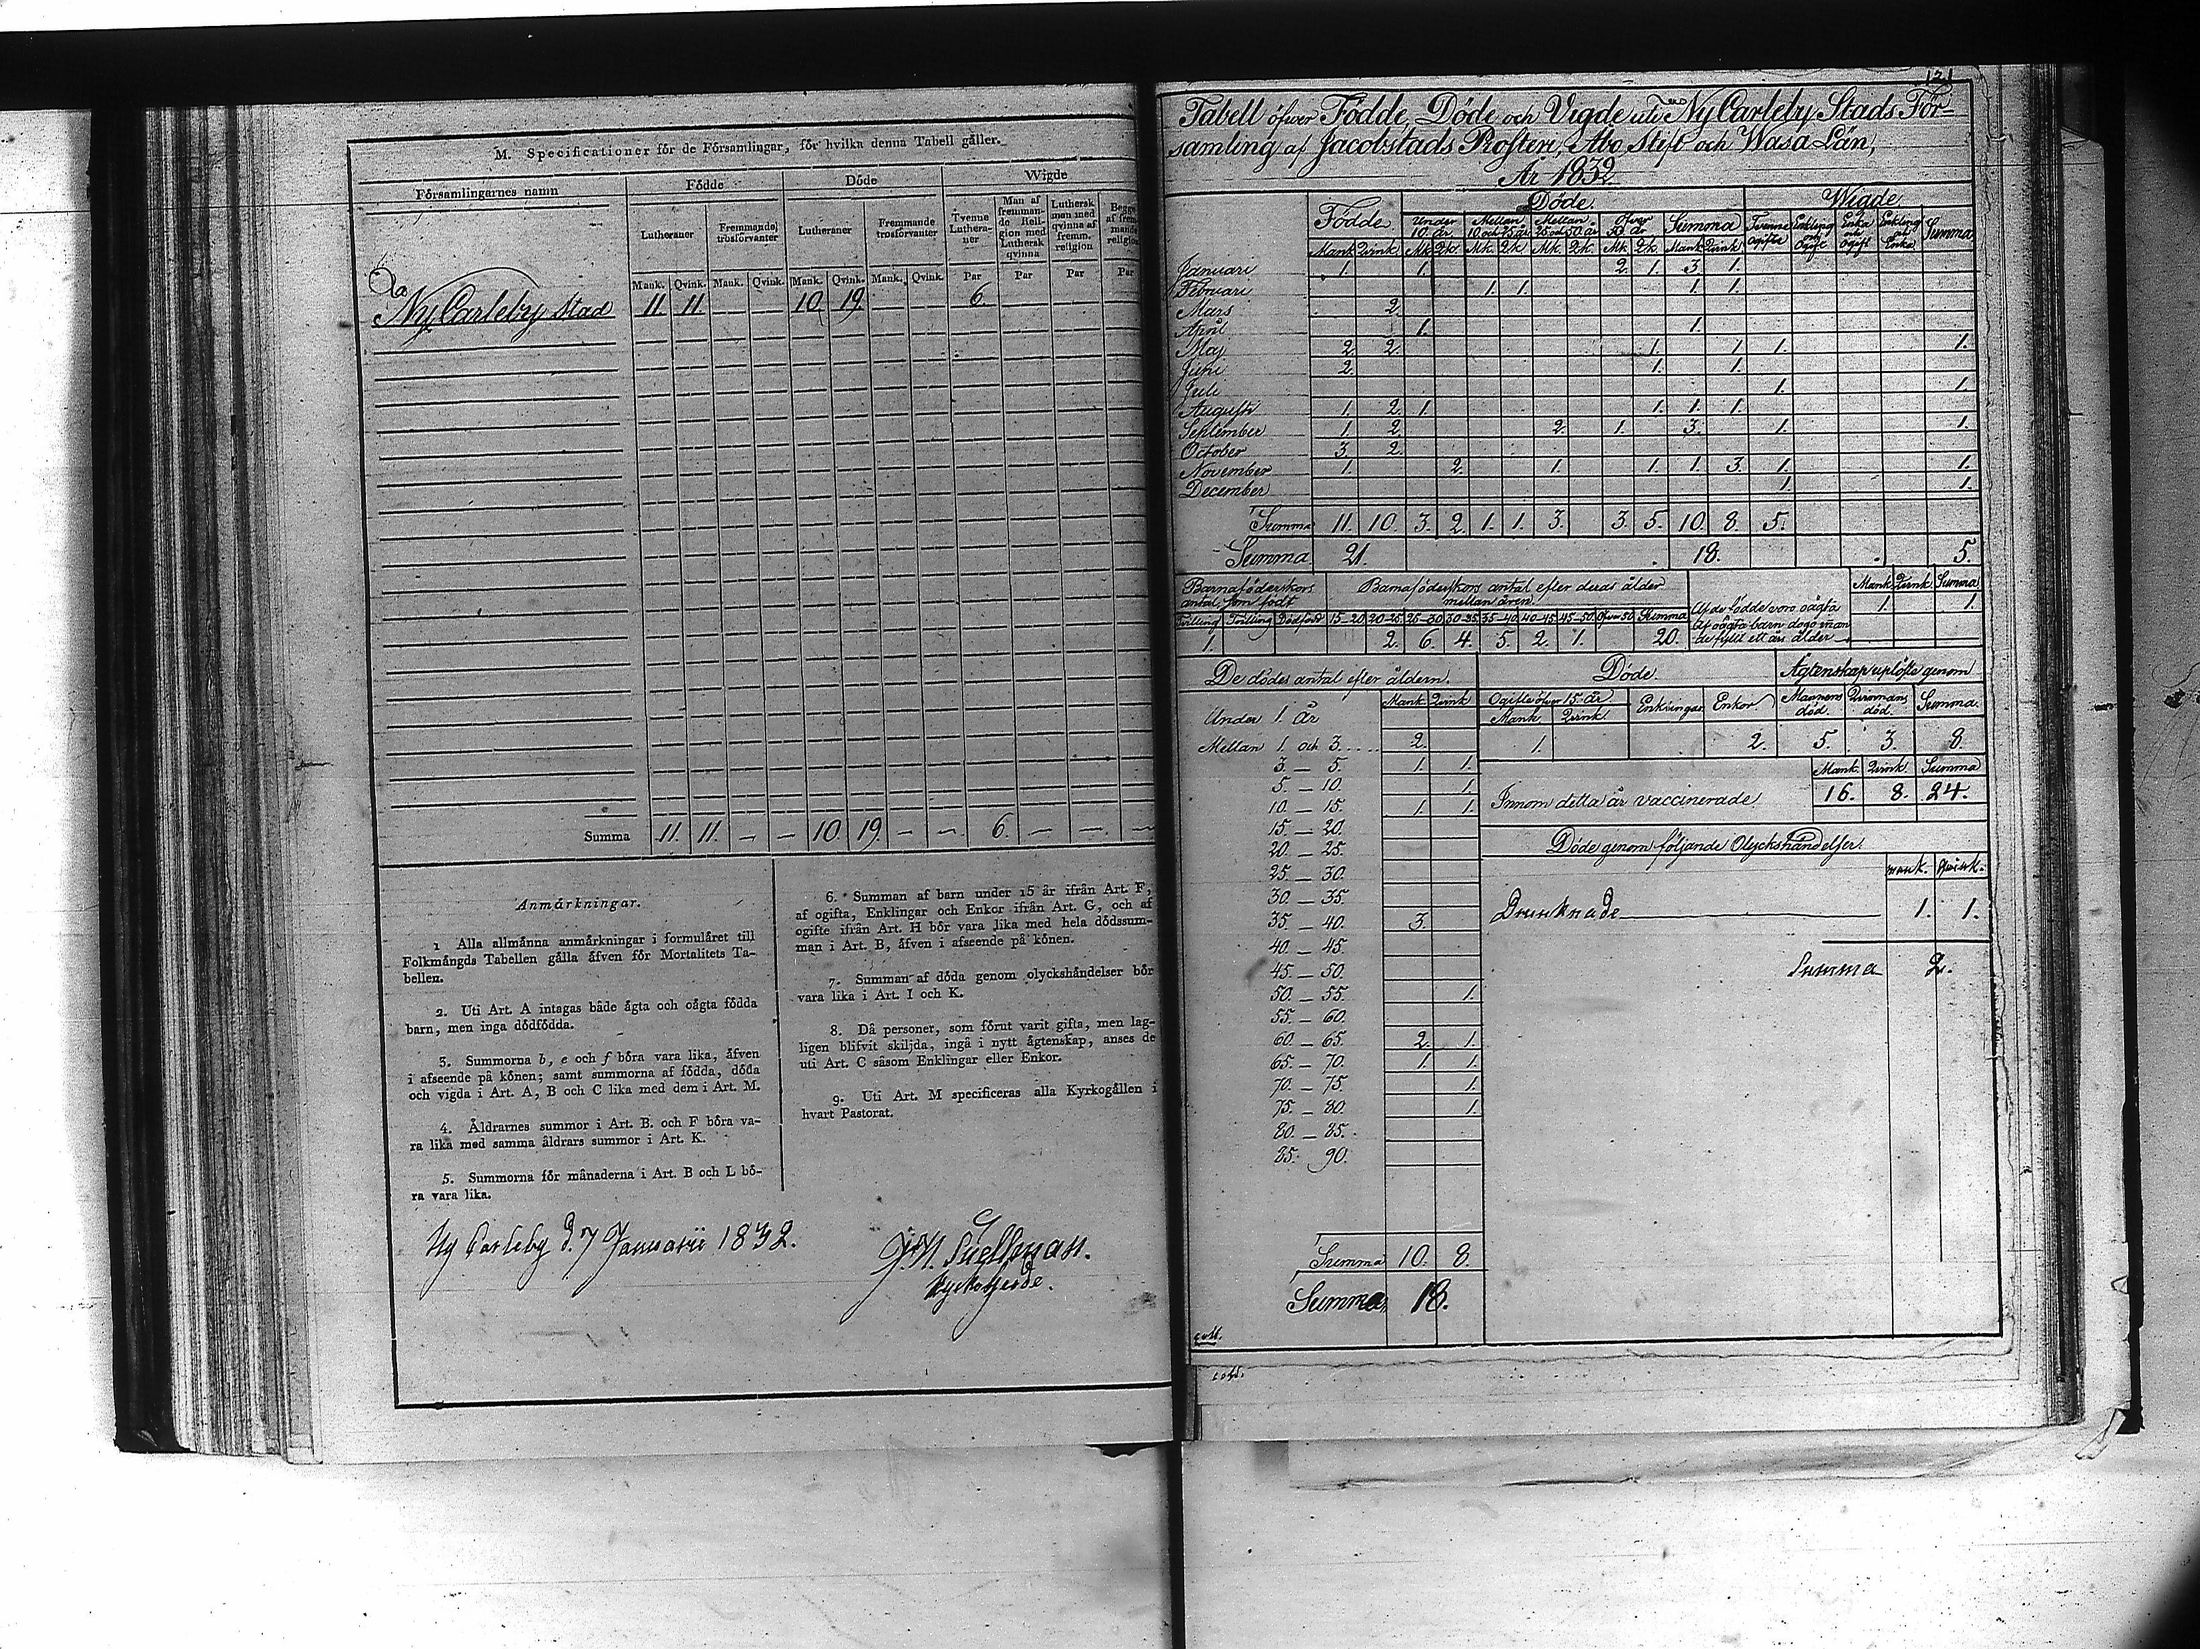 M. Specificationer för de Församlingar, för hvilka denna Tabell gäller.
Församlingarnes namn
Födde
Döde
Wigde
Lutheraner
Fremmande trosförvanter
Lutheraner
Fremmande trosförvanter
Tvenne Lutheraner
Man af fremmande Religion med Luthersk qvinna
Luthersk man med qvinna af fremm. religion
Begge af fremmande religion
Mank. Qvink. Mank. Qvink. Mank. Qvink. Mank. Qvink. Par Par Par Par
Ny Carleby Stad 11. 11. — — 10. 19. — — 6. — — —
Summa 11. 11. — — 10 19. — — 6. — — —
Anmärkningar.
1 Alla allmänna anmärkningar i formuläret till
Folkmängds Tabellen gälla äfven för Mortalitets Ta-
bellen.
2. Uti Art. A intagas både ägta och oägta födda
barn, men inga dödfödda.
3. Summorna b, e och f böra vara lika, äfven
i afseende på könen; samt summorna af födda, döda
och vigda i Art. A, B och C lika med dem i Art. M.
4. Åldrarnes summor i Art. B. och F böra va-
ra lika med samma åldrars summor i Art. K.
5. Summorna för månaderna i Art. B och L bö-
ra vara lika.
6. Summan af barn under 15 år ifrån Art. F,
af ogifta, Enklingar och Enkor ifrån Art. G, och af
ogifte ifrån Art. H bör vara lika med hela dödssum-
man i Art. B, äfven i afseende på könen.
7. Summan af döda genom olyckshändelser bör
vara lika i Art. I och K.
8. Då personer, som förut varit gifta, men lag-
ligen blifvit skiljda, ingå i nytt ägtenskap, anses de
uti Art. C såsom Enklingar eller Enkor.
9. Uti Art. M specificeras alla Kyrkogällen i
hvart Pastorat.
Ny Carleby d. 7 Januarii 1832.
J. N. Snellman.
Kyrkoherde.
121
Tabell öfver Födde, Döde och Vigde uti Ny Carleby Stads För-
samling af Jacobstads Prosteri, Åbo Stift och Wasa Län,
År 1832
Födde
Döde.
Wigde
Under 10 år
Mellan 10 och 25 år
Mellan 25 och 50 år
Öfver 50 år
Summa
Tvenne ogifte
Enkling och Ogift
Enka och Ogift
Enkling och Enka
Summa
Mank Qvink Mk Qk. Mk. Qk Mk. Qk. Mk. Qk. Mank Qvink
Januari 1. 1. 2. 1. 3. 1.
Februari 1. 1. 1. 1.
Mars 2.
April 1. 1.
Maj 2. 2. 1. 1. 1. 1.
Juni 2. 1. 1.
Juli 1. 1.
Augusti 1. 2. 1. 1. 1. 1.
September 1. 2. 2. 1. 3. 1. 1.
October 3. 2.
November 1. 2. 1. 1. 1. 3. 1. 1.
December 1. 1.
Summa 11. 10. 3. 2. 1. 1. 3. 3. 5. 10. 8. 5.
Summa 21. 18. 5.
Barnaföderskors antal, som födt
Barnaföderskors antal efter deras ålder mellan åren.
Mank Qvink Summa
Tvilling Trilling Dödfödt 15-20 20-25 25-30 30-35 35-40 40-45 45-50 Öfver 50 Summa
1. 2. 6. 4. 5. 2. 1. 20.
Af de födde voro oägta 1. 1.
Af oägta barn dogo innan
de fyllt ett års ålder
De dödes antal efter åldern.
Döde
Ägtenskap uplöste genom
Mank Qvink
Ogifte öfver 15 år
Mank Qvink
Enklingar
Enkor
Mannens död.
Qvinnans död.
Summa.
1. 2. 5. 3. 8.
Under 1. År
Mellan 1. och 3. . . . 2.
3. — 5. 1. 1.
5 — 10. 1.
10. — 15. 1. 1.
15. — 20.
20. — 25.
25 — 30.
30. — 35.
35. — 40. 3.
40. — 45.
45. — 50.
50. — 55. 1.
55. — 60.
60. — 65. 2. 1.
65. — 70. 1. 1.
70. — 75. 1.
75. — 80. 1.
80. — 85.
85. 90.
Summa 10. 8.
Summa 18.
Mank. Qvink. Summa
Innom detta år vaccinerade 16. 8. 24.
Döde genom följande Olyckshändelser.
mank. qvink.
Drunknade 1. 1.
Summa 2.